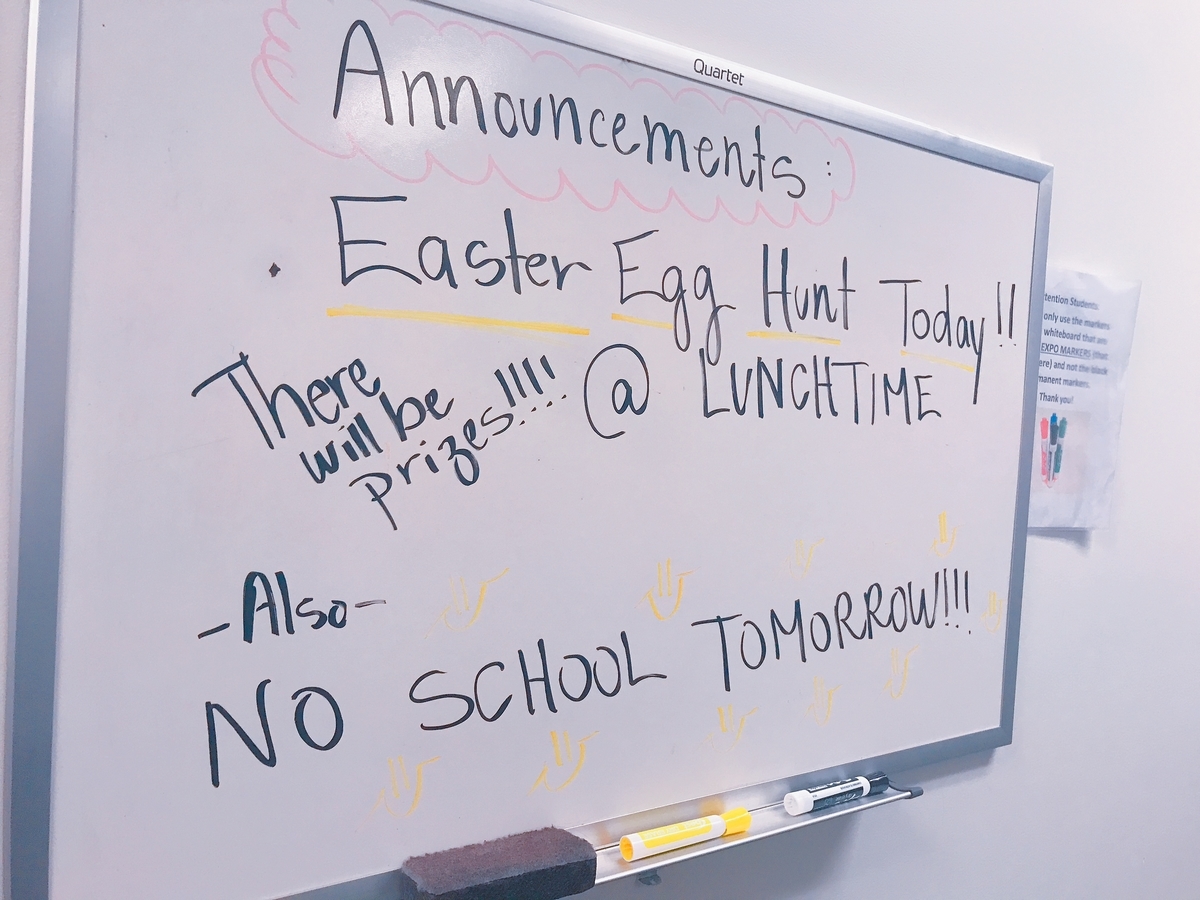 Quartet
Announcements:
Easter Egg Hunt Today!!
@ LUNCHTIME
There
will be
prizes!!!!
-Also-
NO SCHOOL TOMORROW!!!
tention Students
only use the markers
whiteboard that are
EXPO MARKERS (that
ere) and not the black
manent markers.
Thank you!